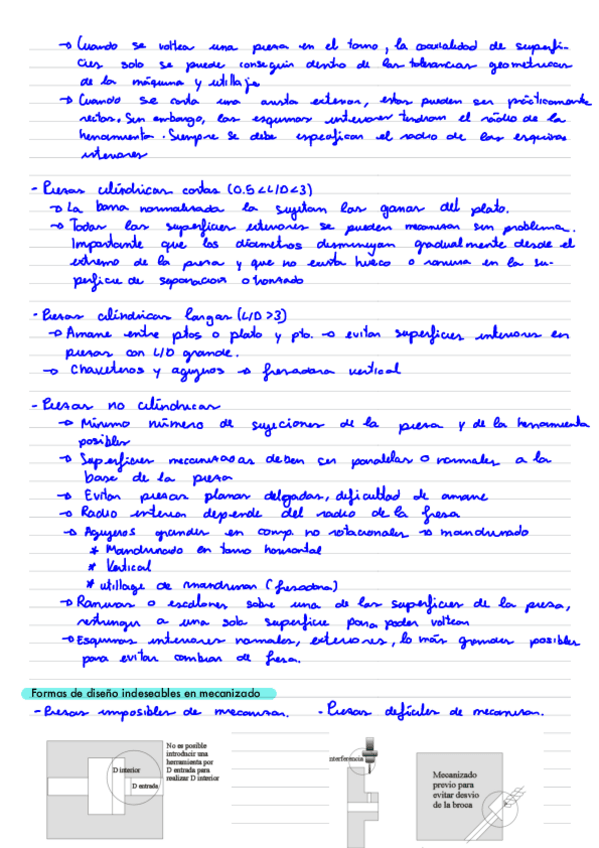 → Cuando se voltea una pieza en el torno, la coaxialidad de superfi-
cies solo se puede conseguir dentro de las tolerancias geometricas
de la máquina y utillaje
→ Cuando se corta una arista exterior, estas pueden ser prácticamente
rectas. Sin embargo, las esquinas interiores tendran el radio de la
herramienta. Siempre se debe especificar el radio de las esquinas
interiores
- Piezas cilíndricas cortas (0.5<L/D<3)
→ La barra normalizada la sujetan las garras del plato.
→ Todas las superficies exteriores se pueden mecanizar sin problema.
Importante que los diámetros disminuyan gradualmente desde el
extremo de la pieza y que no exista hueco o ranura en la su-
perficie de separación o tronzado
- Piezas cilíndricas largas (L/D >3)
→ Amarre entre ptos o plato y pto. → evitar superficies interiores en
piezas con L/D grande.
→ Chaveteros y agujeros → fresadora vertical
- Piezas no cilíndricas
→ Mínimo número de sujeciones de la pieza y de la herramienta
posibles
→ Superficies mecanizadas deben ser paralelas o normales a la
base de la pieza
→ Evitar piezas planas delgadas, dificultad de amarre
→ Radio interior depende del radio de la fresa
→ Agujeros grandes en comp. no rotacionales → mandrinado
* Mandrinado en torno horizontal
* Vertical
* utillage de mandrinar (fresadora)
→ Ranuras o escalones sobre una de las superficies de la pieza,
restringir a una sola superficie para poder voltear
→ Esquinas interiores normales, exteriores, lo más grandes posibles
para evitar cambiar de fresa.
Formas de diseño indeseables en mecanizado
- Piezas imposibles de mecanizar. - Piezas difíciles de mecanizar.
No es posible
introducir una
herramienta por
D entrada para
realizar D interior
D interior
D entrada
nterferencia
Mecanizado
previo para
evitar desvio
de la broca